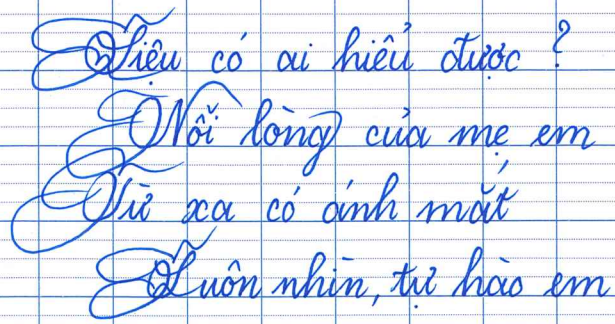 Liệu có ai hiểu được?
Nỗi lòng của mẹ em
Từ xa có ánh mắt
Luôn nhìn, tự hào em